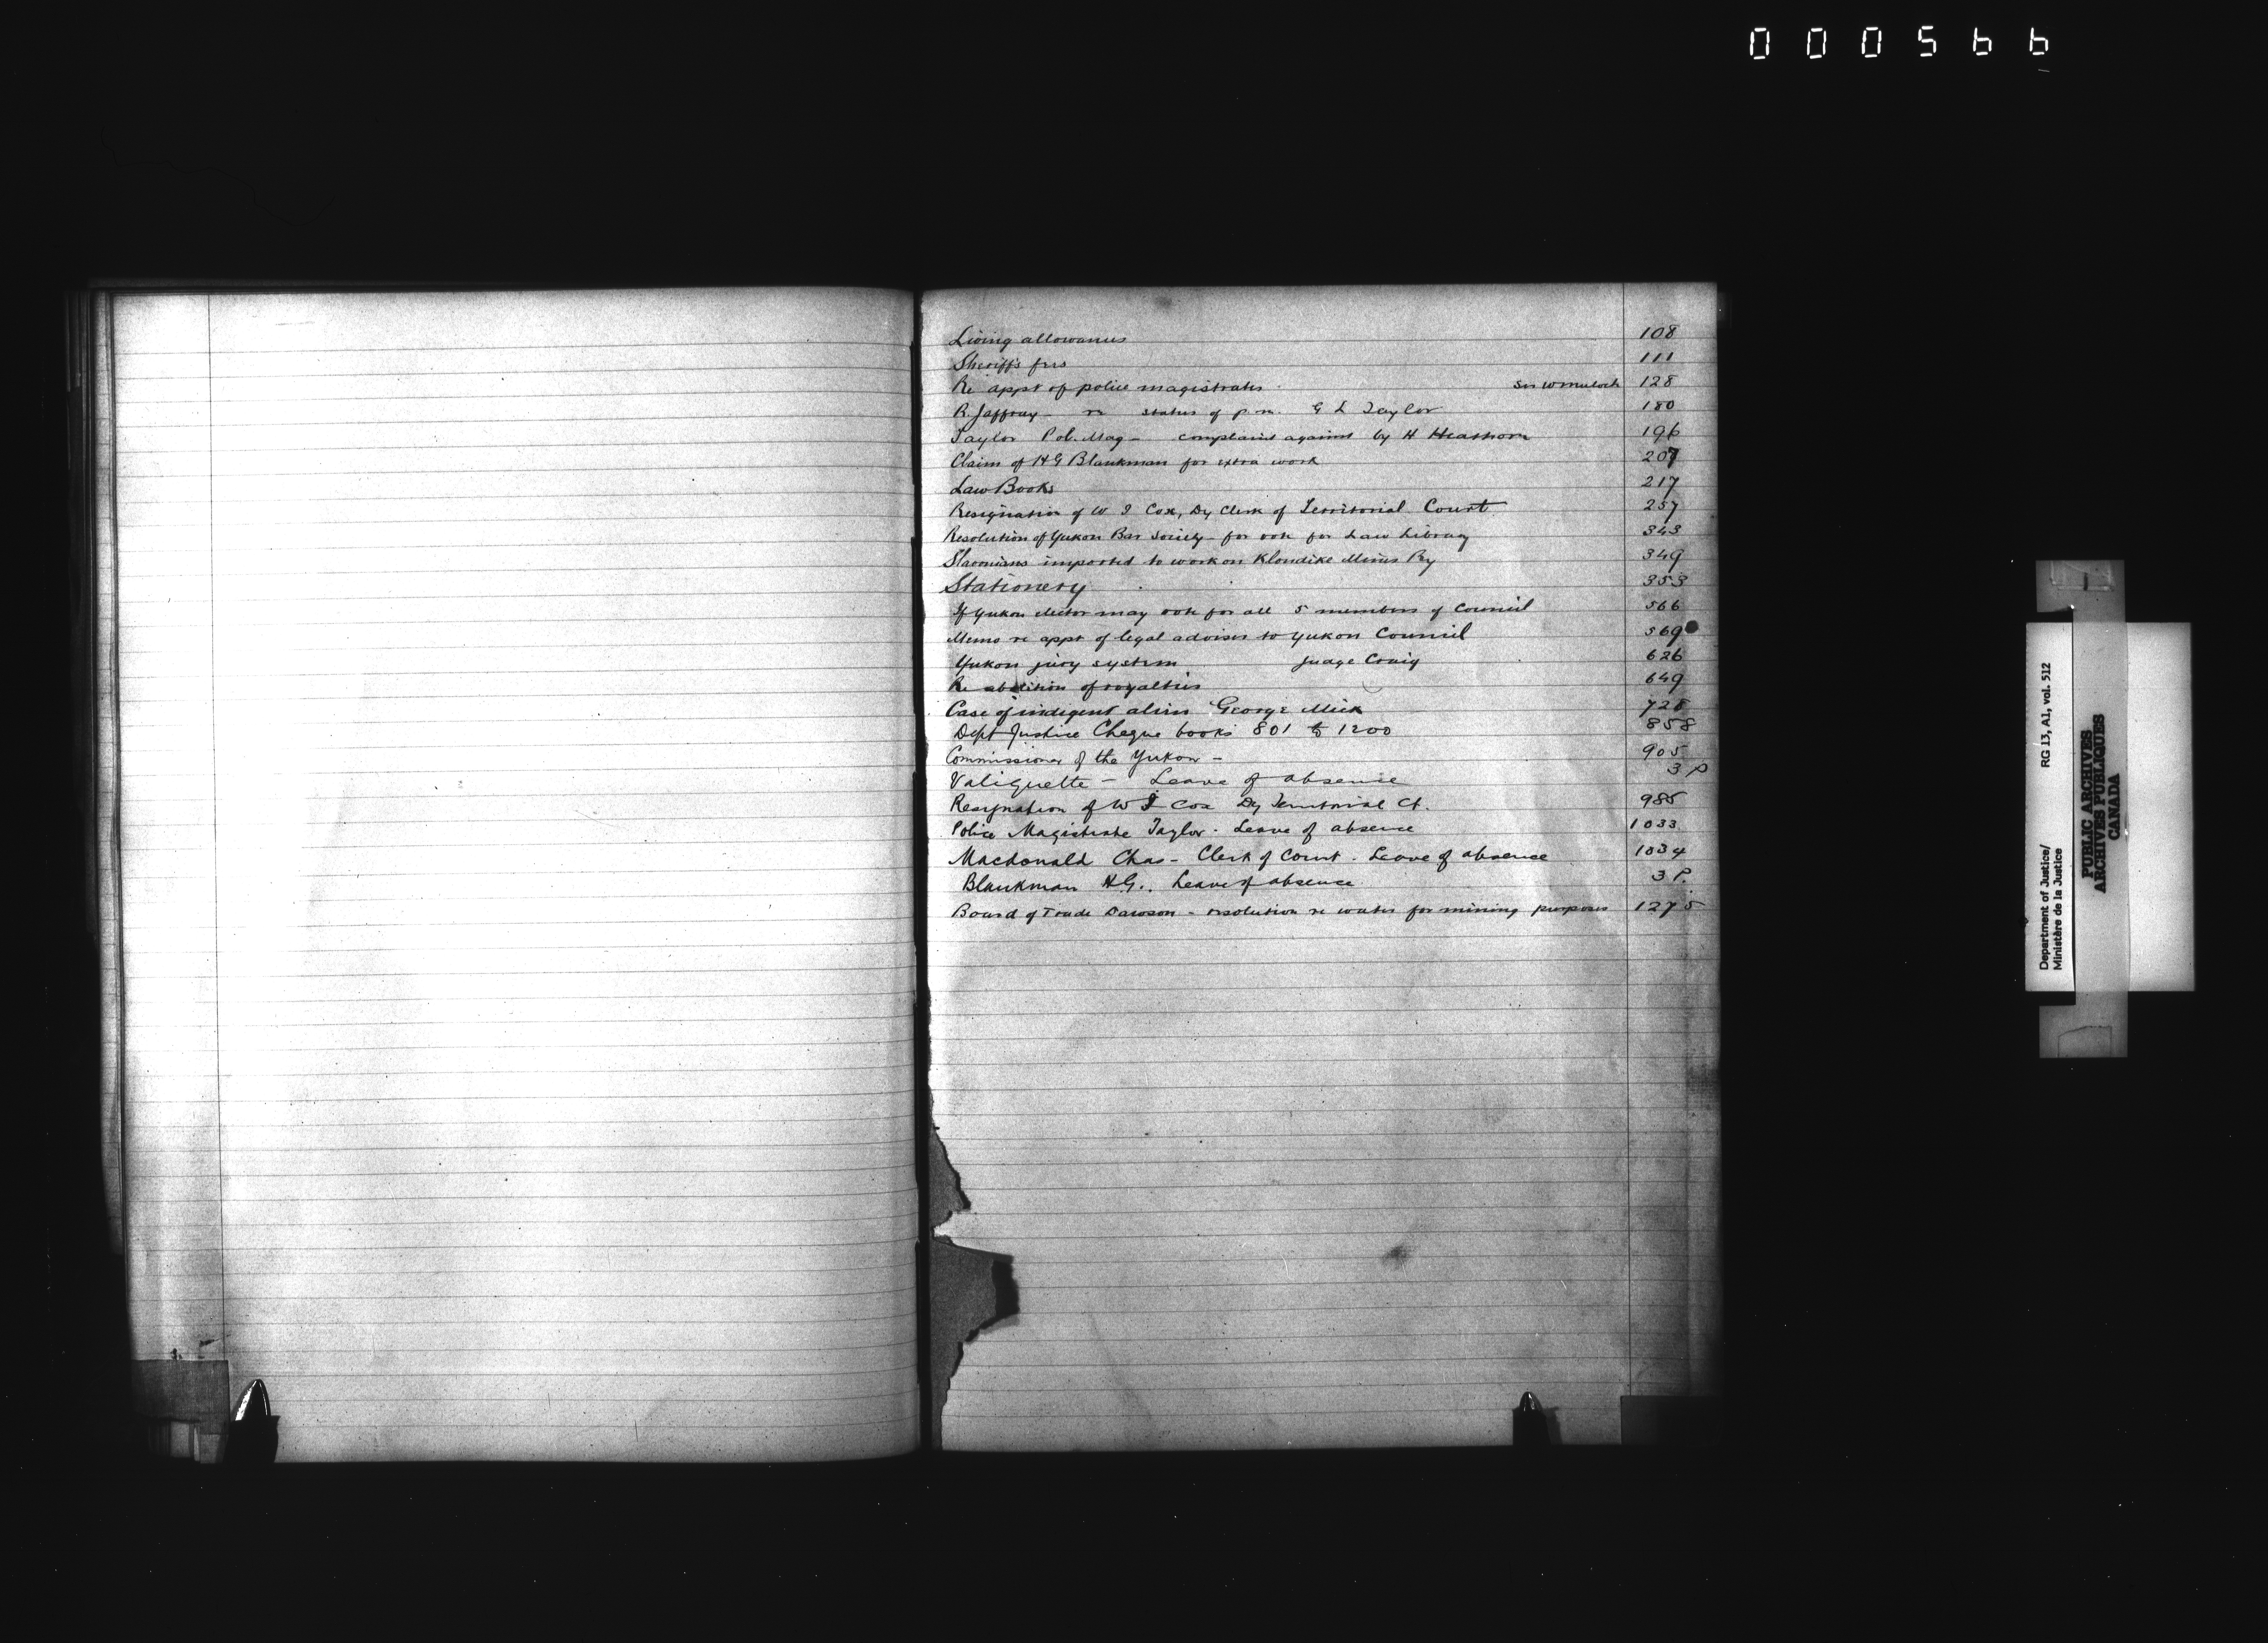 000566
Living allowances 108
Sheriff's fees 111
Re appt of police magistrates Sir W Mulock 128
R. Jaffray - re status of p.m. G L Taylor 180
Taylor Pol. Mag - complaint against by H Heathorn 196
Claim of H G Blankman for extra work 207
Law Books 217
Resignation of W I Cox, Dy Clerk of Territorial Court 257
Resolution of Yukon Bar Society for for Law Library 343
Slavonians imported to work on Klondike Mines Ry 349
Stationery 353
If Yukon elector may vote for all 5 members of Council 566
Memo re appt of legal adviser to Yukon Council 569
Yukon jury system Judge Craig 626
Re abolition of royalties 649
Case of indigent alien George Mick 728
Dept Justice Cheque books 801 to 1200 858
Commissioner of the Yukon - 905
Valiquette - Leave of absence 3 P
Resignation of W I Cox Dy Territorial Ct. 985
Police Magistrate Taylor - Leave of absence 1033
Macdonald Chas - Clerk of Court. Leave of absence 1034
Blankman H.G.. Leave of absence 3 P.
Board of Trade Dawson - resolution re water for mining purposes 1275
Department of Justice/ RG 13, A1, vol. 512
Ministère de la Justice
PUBLIC ARCHIVES
ARCHIVES PUBLIQUES
CANADA